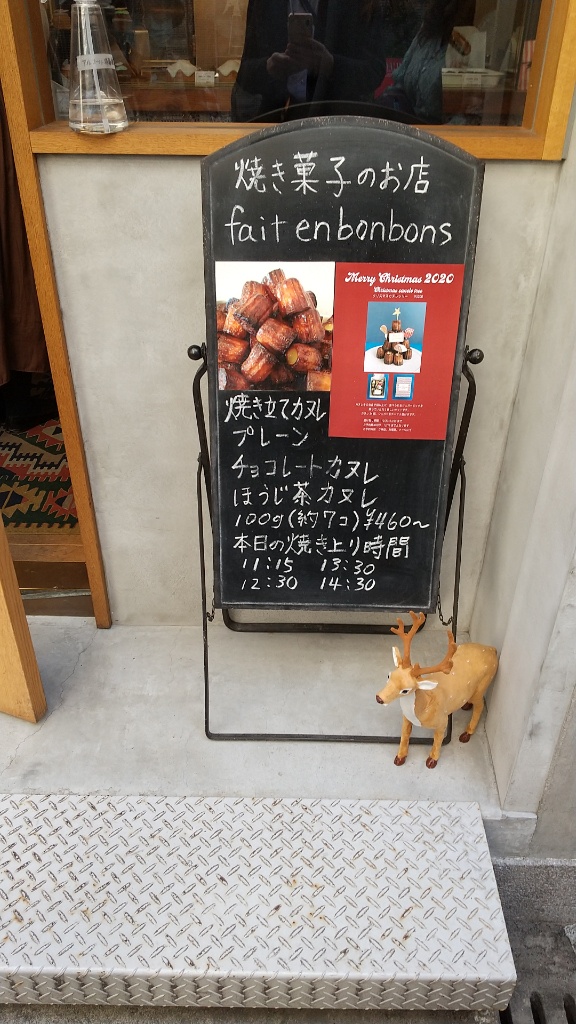 焼き菓子のお店
fait en bonbons
Merry Christmas 2020
Christmas canele tree
焼き立てカヌレ
プレーン
チョコレートカヌレ
ほうじ茶カヌレ
100g(約7コ)¥460～
本日の焼き上り時間
11:15 13:30
12:30 14:30